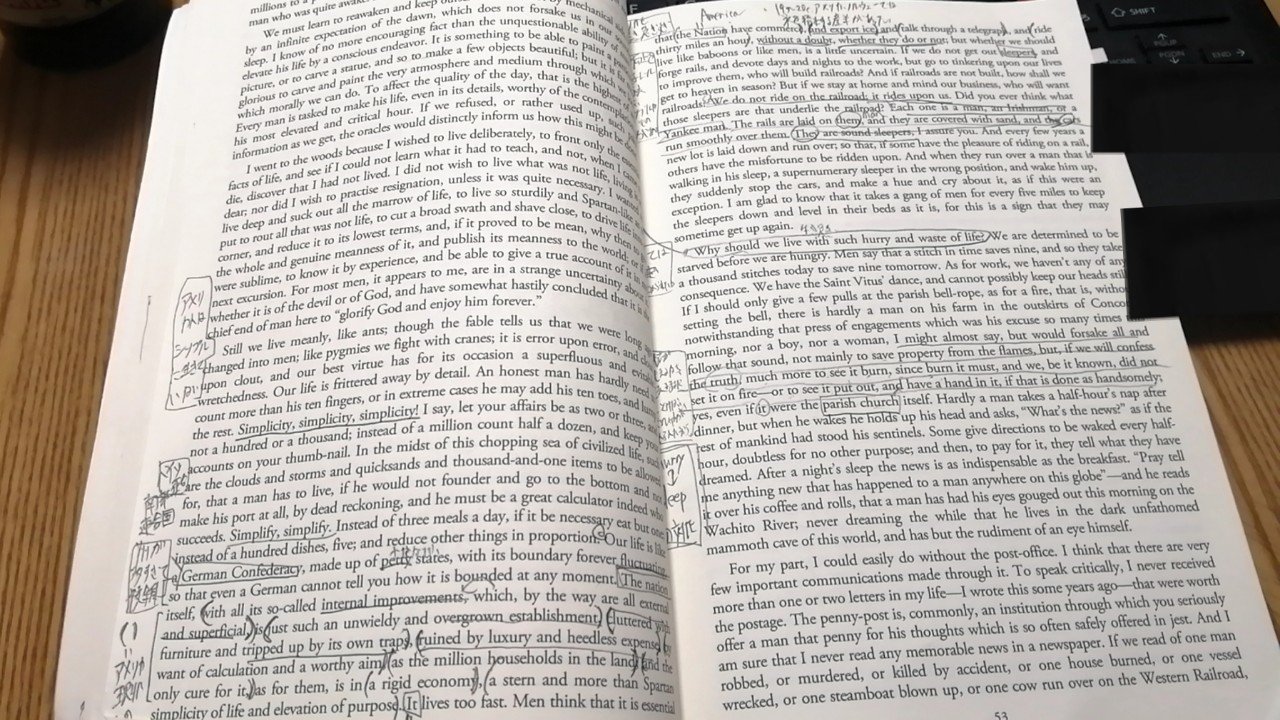 millions to a
man who was quite awake.
We must learn to reawaken and keep
by an infinite expectation of the dawn, which does not forsake us in our
sleep. I know of no more encouraging fact than the unquestionable ability of
elevate his life by a conscious endeavor. It is something to be able to paint a
picture, or to carve a statue, and so to make a few objects beautiful; but it is
glorious to carve and paint the very atmosphere and medium through which
which morally we can do. To affect the quality of the day, that is the highest of
Every man is tasked to make his life, even in its details, worthy of the
his most elevated and critical hour. If we refused, or rather used up, such
information as we get, the oracles would distinctly inform us how this might
I went to the woods because I wished to live deliberately, to front only the
facts of life, and see if I could not learn what it had to teach, and not, when I
die, discover that I had not lived. I did not wish to live what was not life, living
dear; nor did I wish to practise resignation, unless it was quite necessary. I
live deep and suck out all the marrow of life, to live so sturdily and Spartan-like
put to rout all that was not life, to cut a broad swath and shave close, to drive life
corner, and reduce it to its lowest terms, and, if it proved to be mean, why then
the whole and genuine meanness of it, and publish its meanness to the world; or
were sublime, to know it by experience, and be able to give a true account of it in
next excursion. For most men, it appears to me, are in a strange uncertainty about
whether it is of the devil or of God, and have somewhat hastily concluded that it is
chief end of man here to “glorify God and enjoy him forever.”
Still we live meanly, like ants; though the fable tells us that we were long
changed into men; like pygmies we fight with cranes; it is error upon error, and
upon clout, and our best virtue has for its occasion a superfluous and
wretchedness. Our life is frittered away by detail. An honest man has hardly need
count more than his ten fingers, or in extreme cases he may add his ten toes, and lump
the rest. Simplicity, simplicity! I say, let your affairs be as two or three, and
not a hundred or a thousand; instead of a million count half a dozen, and keep
accounts on your thumb-nail. In the midst of this chopping sea of civilized life, such
are the clouds and storms and quicksands and thousand-and-one items to be allowed
for, that a man has to live, if he would not founder and go to the bottom and not
make his port at all, by dead reckoning, and he must be a great calculator indeed who
succeeds. Simplify, simplify. Instead of three meals a day, if it be necessary eat but one;
instead of a hundred dishes, five; and reduce other things in proportion. Our life is like
a German Confederacy, made up of petty states, with its boundary forever fluctuating,
so that even a German cannot tell you how it is bounded at any moment. The nation
itself, with all its so-called internal improvements, which, by the way are all external
and superficial, is just such an unwieldy and overgrown establishment, cluttered with
furniture and tripped up by its own traps, ruined by luxury and heedless expense, by
want of calculation and a worthy aim, as the million households in the land; and the
only cure for it, as for them, is in a rigid economy, a stern and more than Spartan
simplicity of life and elevation of purpose. It lives too fast. Men think that it is essential
アメリカ人は
America
that the Nation have commerce, and export ice, and talk through a telegraph, and ride
thirty miles an hour, without a doubt, whether they do or not; but whether we should
live like baboons or like men, is a little uncertain. If we do not get out sleepers, and
forge rails, and devote days and nights to the work, but go to tinkering upon our lives
to improve them, who will build railroads? And if railroads are not built, how shall we
get to heaven in season? But if we stay at home and mind our business, who will want
railroads? We do not ride on the railroad; it rides upon us. Did you ever think what
those sleepers are that underlie the railroad? Each one is a man, an Irishman, or a
Yankee man. The rails are laid on them, and they are covered with sand, and the cars
run smoothly over them. They are sound sleepers, I assure you. And every few years a
new lot is laid down and run over; so that, if some have the pleasure of riding on a rail,
others have the misfortune to be ridden upon. And when they run over a man that is
walking in his sleep, a supernumerary sleeper in the wrong position, and wake him up,
they suddenly stop the cars, and make a hue and cry about it, as if this were an
exception. I am glad to know that it takes a gang of men for every five miles to keep
the sleepers down and level in their beds as it is, for this is a sign that they may
sometime get up again.
Why should we live with such hurry and waste of life? We are determined to be
starved before we are hungry. Men say that a stitch in time saves nine, and so they take
a thousand stitches today to save nine tomorrow. As for work, we haven't any of any
consequence. We have the Saint Vitus' dance, and cannot possibly keep our heads still.
If I should only give a few pulls at the parish bell-rope, as for a fire, that is, without
setting the bell, there is hardly a man on his farm in the outskirts of Concord,
notwithstanding that press of engagements which was his excuse so many times
morning, nor a boy, nor a woman, I might almost say, but would forsake all and
follow that sound, not mainly to save property from the flames, but, if we will confess
the truth, much more to see it burn, since burn it must, and we, be it known, did not
set it on fire—or to see it put out, and have a hand in it, if that is done as handsomely;
yes, even if it were the parish church itself. Hardly a man takes a half-hour's nap after
dinner, but when he wakes he holds up his head and asks, “What's the news?” as if the
rest of mankind had stood his sentinels. Some give directions to be waked every half-
hour, doubtless for no other purpose; and then, to pay for it, they tell what they have
dreamed. After a night's sleep the news is as indispensable as the breakfast. “Pray tell
me anything new that has happened to a man anywhere on this globe”—and he reads
it over his coffee and rolls, that a man has had his eyes gouged out this morning on the
Wachito River; never dreaming the while that he lives in the dark unfathomed
mammoth cave of this world, and has but the rudiment of an eye himself.
For my part, I could easily do without the post-office. I think that there are very
few important communications made through it. To speak critically, I never received
more than one or two letters in my life—I wrote this some years ago—that were worth
the postage. The penny-post is, commonly, an institution through which you seriously
offer a man that penny for his thoughts which is so often safely offered in jest. And I
am sure that I never read any memorable news in a newspaper. If we read of one man
robbed, or murdered, or killed by accident, or one house burned, or one vessel
wrecked, or one steamboat blown up, or one cow run over on the Western Railroad,
53
SHIFT
PGUP
PGDN
HOME
END